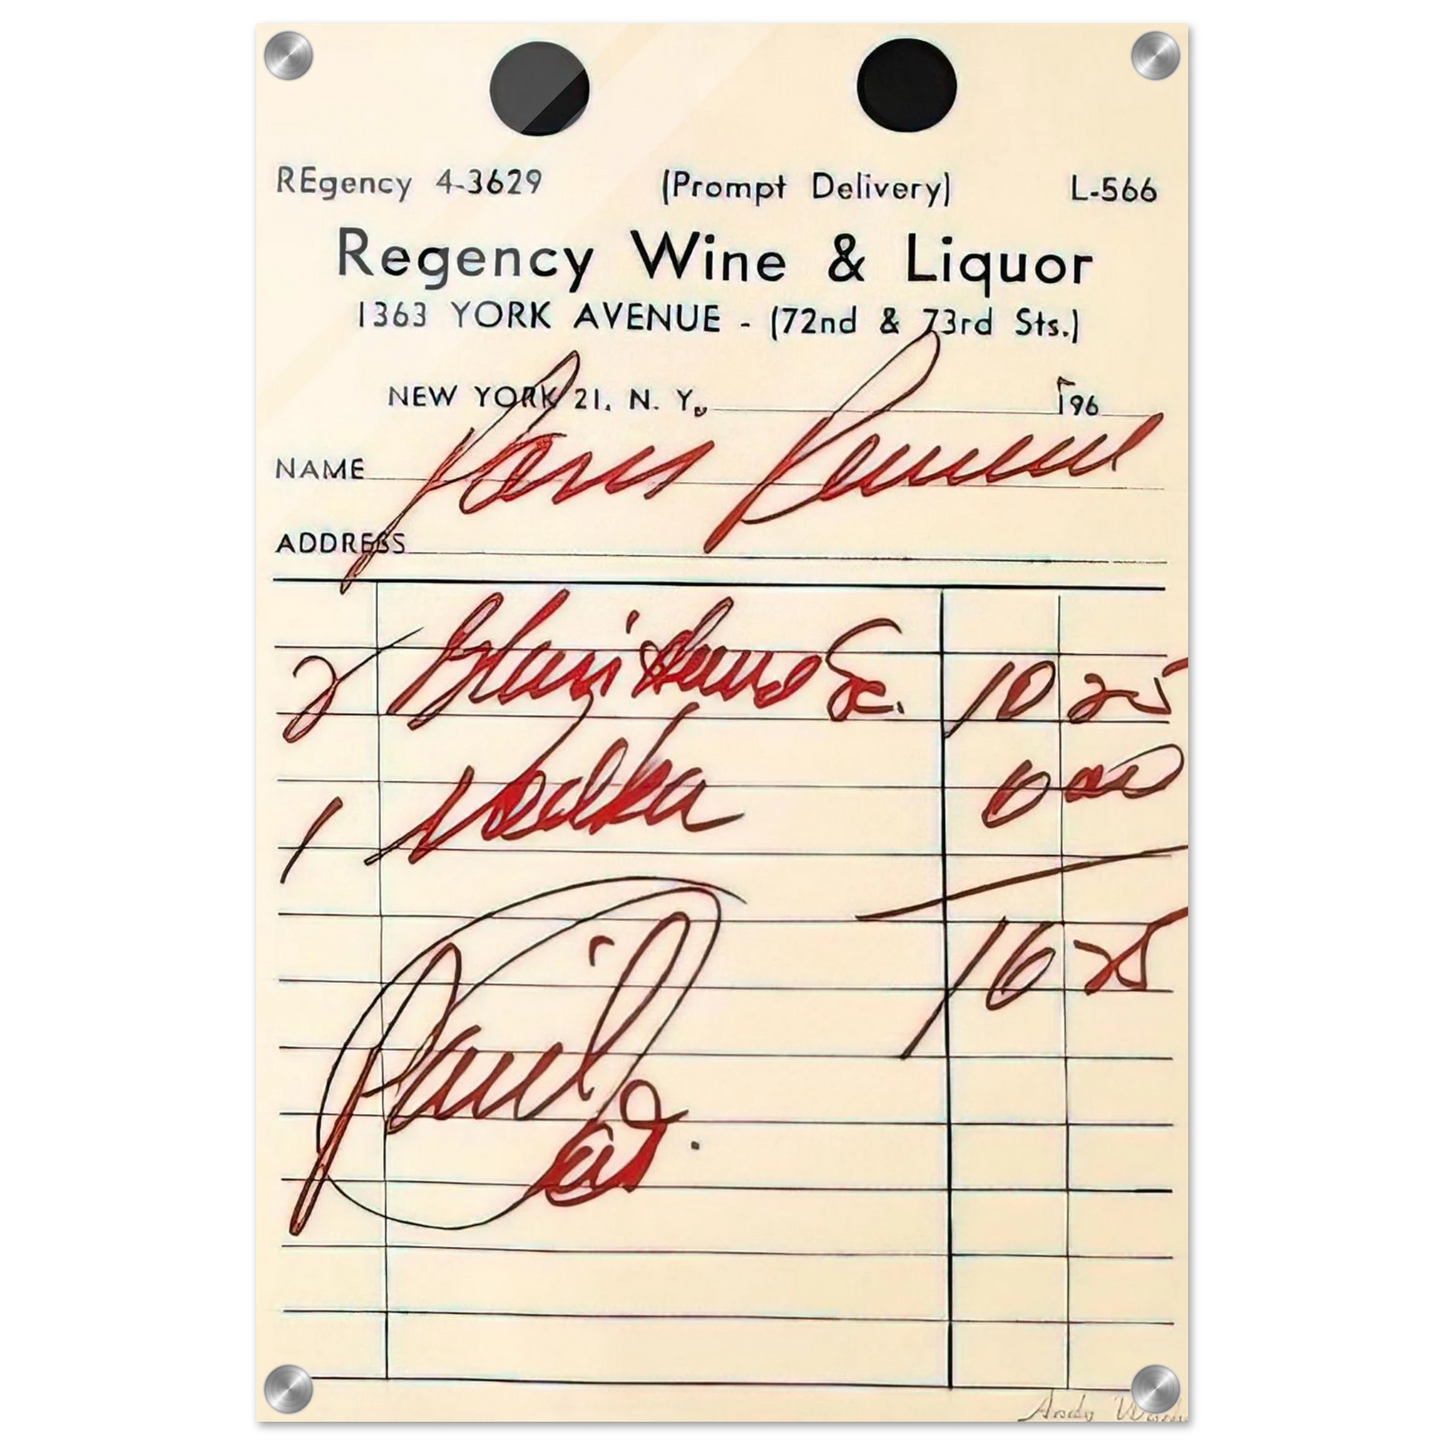 REgency 4-3629 (Prompt Delivery) L-566
Regency Wine & Liquor
1363 YORK AVENUE - (72nd & 73rd Sts.)
NEW YORK 21, N. Y. 196
NAME
ADDRESS
2 Sc. 10 25
1 Vodka 6 00
16 25
Paid
Andy